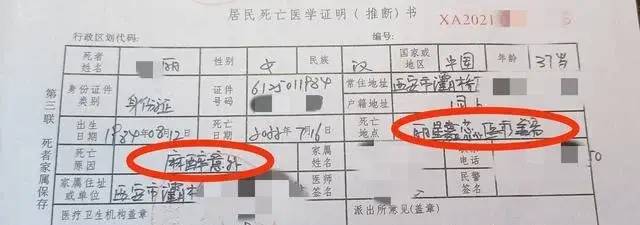 居民死亡医学证明(推断)书
XA2021
行政区划代码: 编号:
死者姓名 丽 性别 女 民族 汉 国家或地区 中国 年龄 37岁
身份证件类别 身份证 证件号码 6125011984 常住地址 西安市灞桥
户籍地址 同上
出生日期 1984年08月12日 死亡日期 2022年7月16日 死亡地点
死亡原因 麻醉意外 家属姓名 电话 50
家属住址或单位 西安市灞桥 医师签名 民警签名
医疗卫生机构盖章 派出所意见(盖章)
第三联 死者家属保存